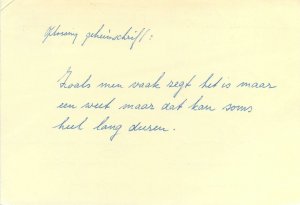 Oplossing geheimschrift:
Zoals men vaak zegt het is maar
een weet maar dat kan soms
heel lang duren.